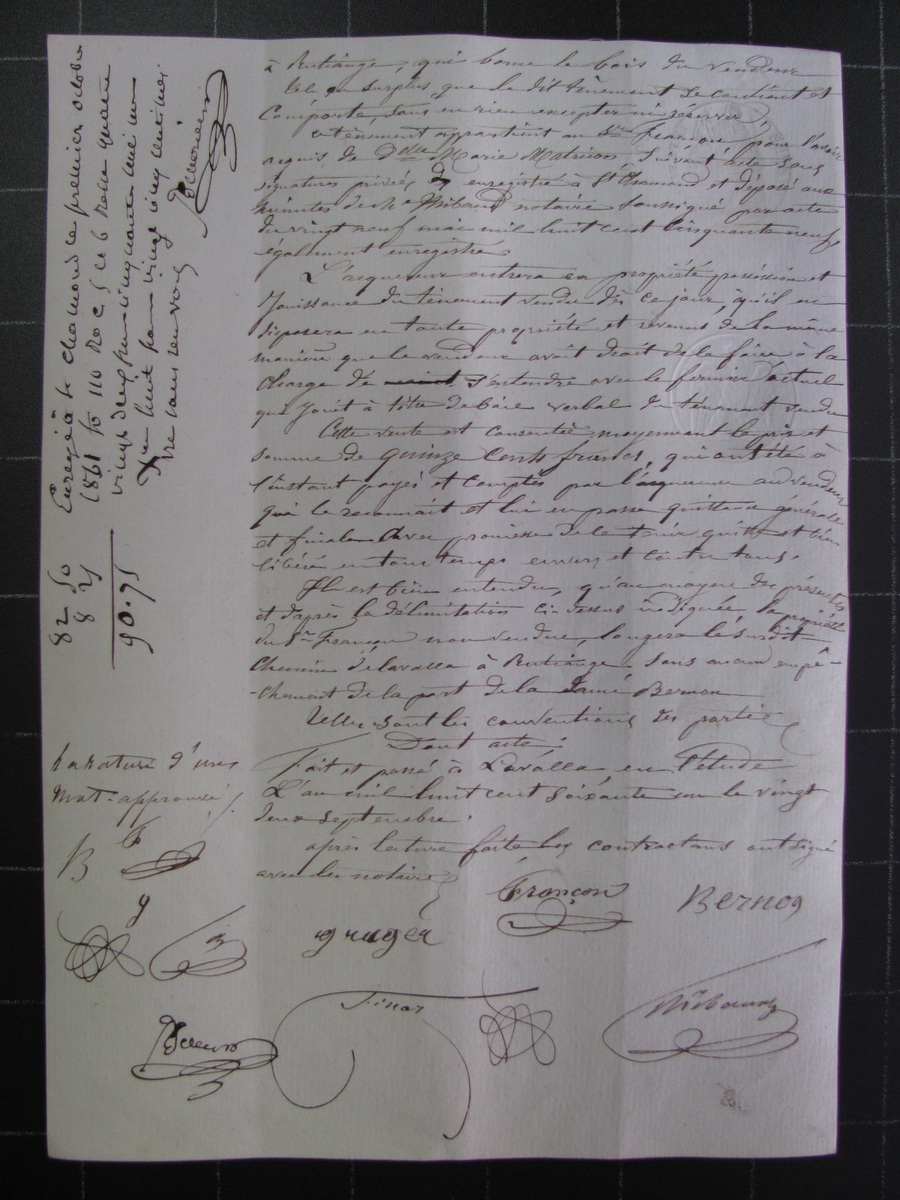 à Rutiange, qui borne le bois du vendeur
tel au surplus que le dit tènement se contient et
comporte, sans en rien excepter ni réserver
ce tènement appartient au Sr Françon pour l'avoir
acquis de Dlle Marie Matricon, suivant acte sous
signatures privées enregistré à St Chamond et déposé aux
minutes de Me Thibaud notaire soussigné par acte
du vingt neuf mai mil huit cent cinquante neuf,
également enregistré
L'acquéreur entrera en propriété possession et
jouissance du tènement vendu dès ce jour, qu'il en
disposera en toute propriété et revenus de la même
manière que le vendeur avait droit de le faire à la
charge de s'entendre avec le fermier actuel
qui jouit à titre de bail verbal du tènement vendu
Cette vente est consentie moyennant le prix et
somme de quinze cents francs, qui ont été à
l'instant payés et comptés par l'acquéreur au vendeur
qui le reconnait et lui en passe quittance générale
et finale avec promesse de le tenir quitte et bien
libéré en tous temps envers et contre tous.
Il est bien entendu, qu'au moyen des présentes
et d'après la délimitation ci-dessus indiquée, la propriété
du Sr Françon non vendue, longera le susdit
chemin de Lavalla à Rutiange sans aucun empê-
-chement de la part de la Bernon
Telles sont les conventions des parties
Dont acte:
Fait et passé à Lavalla, en l'étude
L'an mil huit cent soixante un le vingt
deux septembre.
après lecture faite les contractans ont signé
avec les notaires
Françon
Bernon
Enregistré à St Chamond le premier octobre
1861 fo 110 Ro c 5 et 6 Reçu quatre
vingt deux francs cinquante centimes
Dixième huit francs vingt cinq centimes
82 50
8 25
90.75
la rature d'un
mot approuvé
B F
g